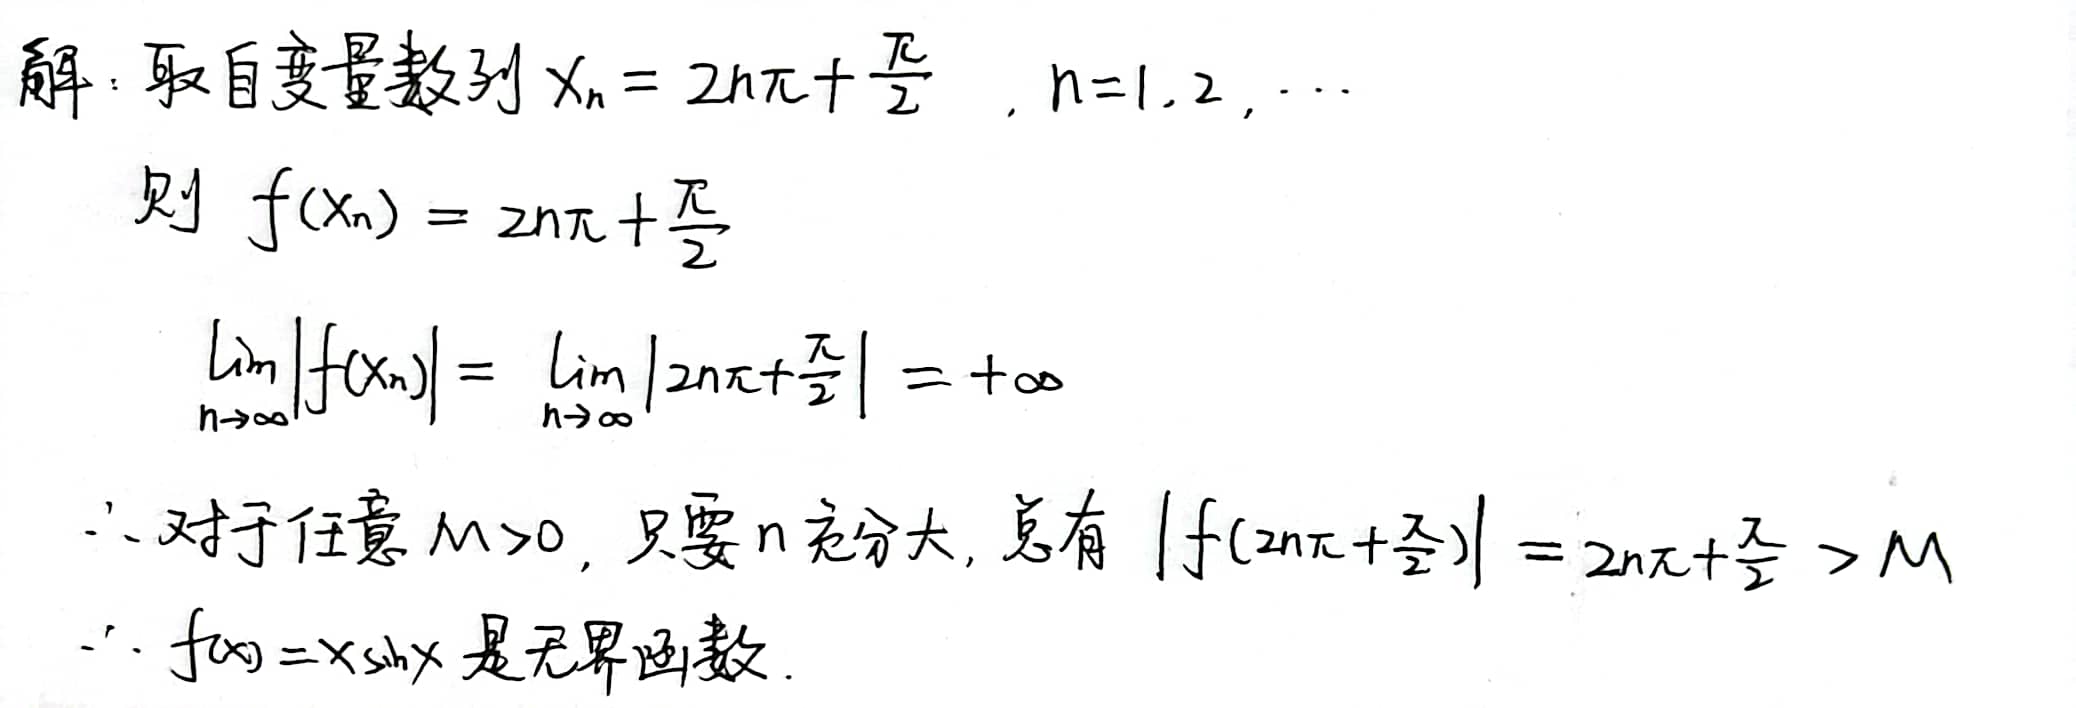 解：取自变量数列 xₙ = 2nπ + π/2 , n=1,2,⋯
则 f(xₙ) = 2nπ + π/2
lim_{n→∞} |f(xₙ)| = lim_{n→∞} |2nπ + π/2| = +∞
∴ 对于任意 M>0, 只要 n 充分大, 总有 |f(2nπ + π/2)| = 2nπ + π/2 > M
∴ f(x) = x sin x 是无界函数.